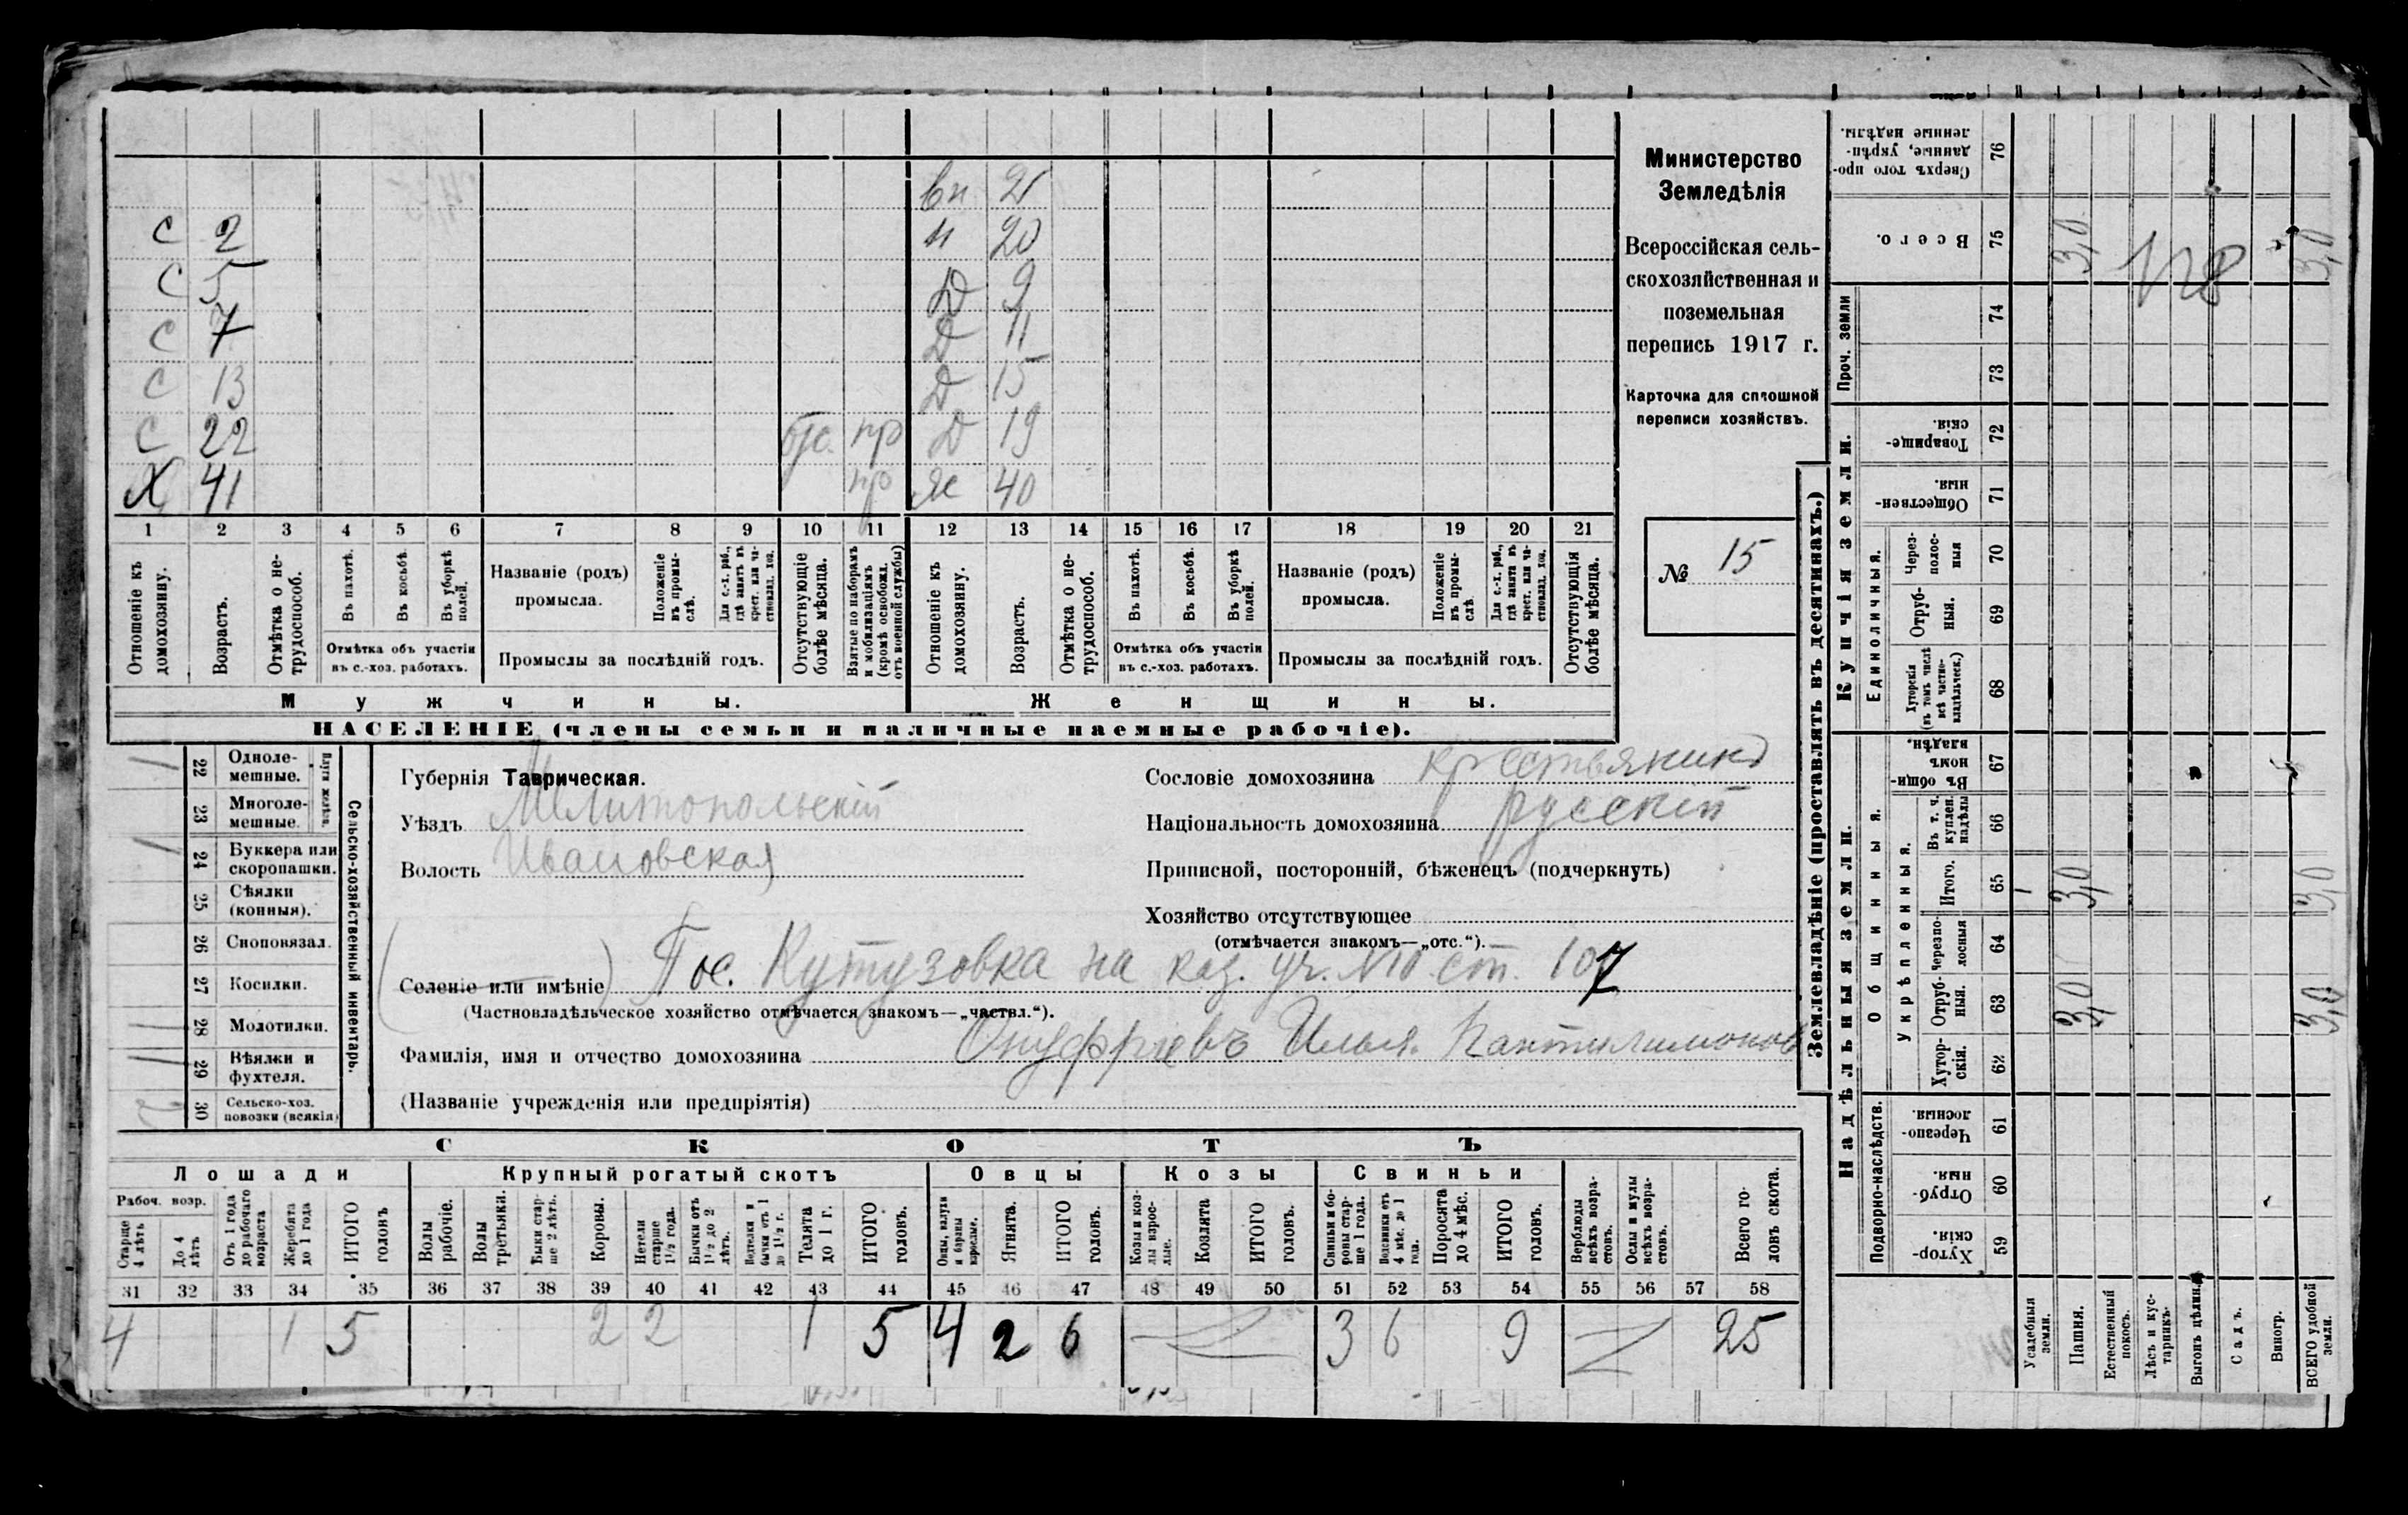 вн 21
С 2 н 20
С 5 Д 9
С 7 Д 11
С 13 Д 15
С 22 отс. пр Д 19
Х 41 пр Ж 40
1 2 3 4 5 6 7 8 9 10 11 12 13 14 15 16 17 18 19 20 21
Отношеніе къ домохозяину.
Возрастъ.
Отмѣтка о не-трудоспособ.
Въ пахотѣ.
Въ косьбѣ.
Въ уборкѣ полей.
Отмѣтка объ участіи
въ с.-хоз. работахъ.
Названіе (родъ)
промысла.
Положеніе въ промы-слѣ.
Для с.-х. раб., гдѣ занятъ въ крест. или ча-стновлад. хоз.
Промыслы за послѣдній годъ.
Отсутствующіе болѣе мѣсяца.
Взятые по наборамъ и мобилизаціямъ (кромѣ освобожд. отъ военной службы)
Отношеніе къ домохозяину.
Возрастъ.
Отмѣтка о не-трудоспособ.
Въ пахотѣ.
Въ косьбѣ.
Въ уборкѣ полей.
Отмѣтка объ участіи
въ с.-хоз. работахъ.
Названіе (родъ)
промысла.
Положеніе въ промы-слѣ.
Для с.-х. раб., гдѣ занята въ крест. или ча-стновлад. хоз.
Промыслы за послѣдній годъ.
Отсутствующія болѣе мѣсяца.
Мужчины. Женщины.
НАСЕЛЕНІЕ (члены семьи и наличные наемные рабочіе).
Министерство
Земледѣлія
Всероссійская сель-
скохозяйственная и
поземельная
перепись 1917 г.
Карточка для сплошной
переписи хозяйствъ.
№ 15
1 22 Одноле-
мешные.
23 Многоле-
мешные.
1 24 Буккера или
скоропашки.
25 Сѣялки
(конныя).
26 Сноповязал.
27 Косилки.
1 28 Молотилки.
1 29 Вѣялки и
фухтеля.
30 Сельско-хоз.
повозки (всякія)
Сельско-хозяйственный инвентарь.
Губернія Таврическая.
Уѣздъ Мелитопольскій
Волость Ивановская
Сословіе домохозяина крестьянинъ
Національность домохозяина русскій
Приписной, посторонній, бѣженецъ (подчеркнуть)
Хозяйство отсутствующее
(отмѣчается знакомъ—„отс.“).
Селеніе или имѣніе Пос. Кутузовка на каз. уч. №10 ст. 107
(Частновладѣльческое хозяйство отмѣчается знакомъ—„частвл.“).
Фамилія, имя и отчество домохозяина Онуфріевъ Илья Пантилимонов
(Названіе учрежденія или предпріятія)
СКОТЪ
Лошади Крупный рогатый скотъ Овцы Козы Свиньи
Рабоч. возр.
Старше 4 лѣтъ
До 4 лѣтъ
Отъ 1 года до рабочаго возраста
Жеребята до 1 года
ИТОГО головъ
Волы рабочіе.
Волы третьяки.
Быки стар-ше 2 лѣтъ.
Коровы.
Нетели старше 1½ года.
Бычки отъ 1½ до 2 лѣтъ.
Нетельки и бычки отъ 1 до 1½ г.
Телята до 1 г.
ИТОГО головъ.
Овцы, валухи и бараны взрослые.
Ягнята.
ИТОГО головъ.
Козы и коз-лы взрос-лые.
Козлята
ИТОГО головъ.
Свиньи и бо-ровы стар-ше 1 года.
Подсвинки отъ 4 мѣс. до 1 года.
Поросята до 4 мѣс.
ИТОГО головъ.
Верблюды всѣхъ возра-стовъ.
Ослы и мулы всѣхъ возра-стовъ.
Всего го-ловъ скота.
31 32 33 34 35 36 37 38 39 40 41 42 43 44 45 46 47 48 49 50 51 52 53 54 55 56 57 58
4 1 5 2 2 1 5 4 2 6 3 6 9 25
Землевладѣніе (проставлять въ десятинахъ.)
Надѣльныя земли. Купчія земли. Проч. земли
Подворно-наслѣдств.
Общинныя.
Укрѣпленныя.
Единоличныя.
Хутор-скія. 59
Отруб-ныя. 60
Черезпо-лосныя. 61
Хутор-скія. 62
Отруб-ныя. 63
Черезпо-лосныя 64
Итого. 65
Въ т. ч. куплен. надѣлы 66
Въ общи-номъ владѣн. 67
Хуторскія (въ томъ числѣ всѣ частно-владѣльческ.) 68
Отруб-ныя. 69
Через-полос-ныя 70
Обществен-ныя. 71
Товарище-скія. 72
73
74
Всего. 75
Сверхъ того про-данные, укрѣп-ленные надѣлы. 76
Усадебныя земли.
Пашня. 3,0 3,0 3,0
Естественный покосъ.
Лѣсъ и кус-тарникъ.
Выгонъ цѣлина
Садъ.
Виногр.
ВСЕГО удобной земли. 3,0 3,0 3,0
128